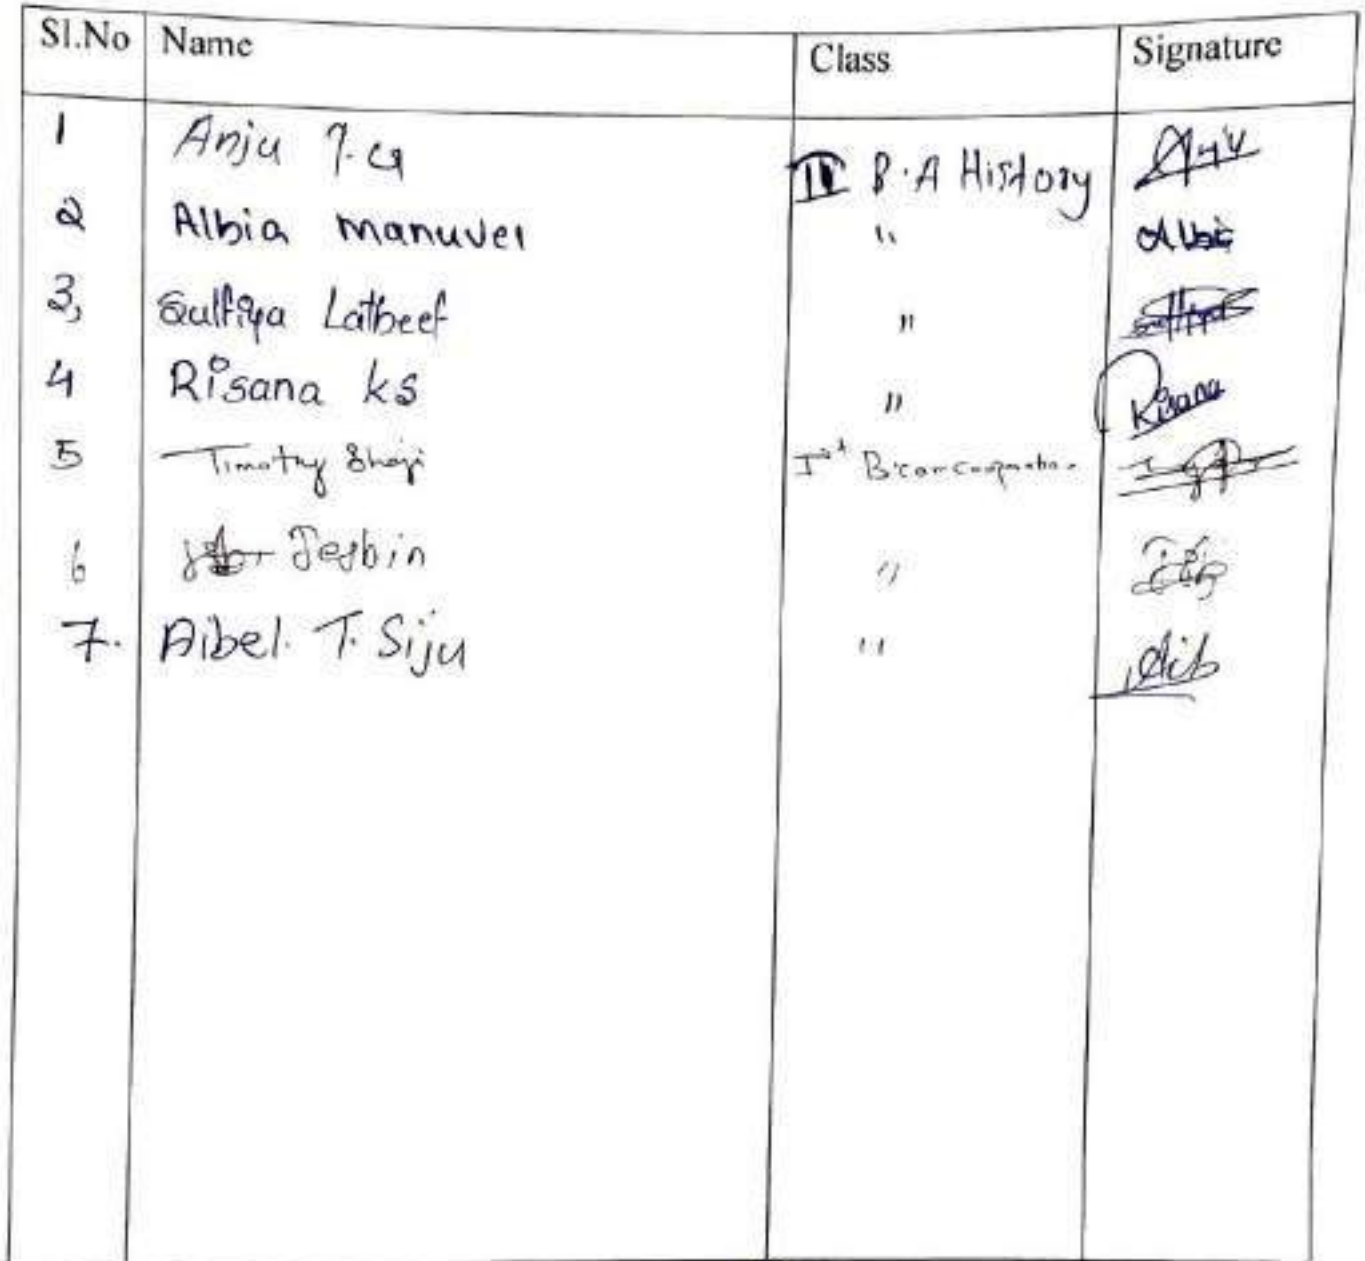 Sl.No Name Class Signature
1 Anju II B.A History Anju
2 Albia Manuvel " Albia
3, Sulfiya Latheef " Sulfiya
4 Risana KS " Risana
5 Timothy Shaji Ist B.com
6 Jesbin "
7. Aibel. T. Siju " Aib